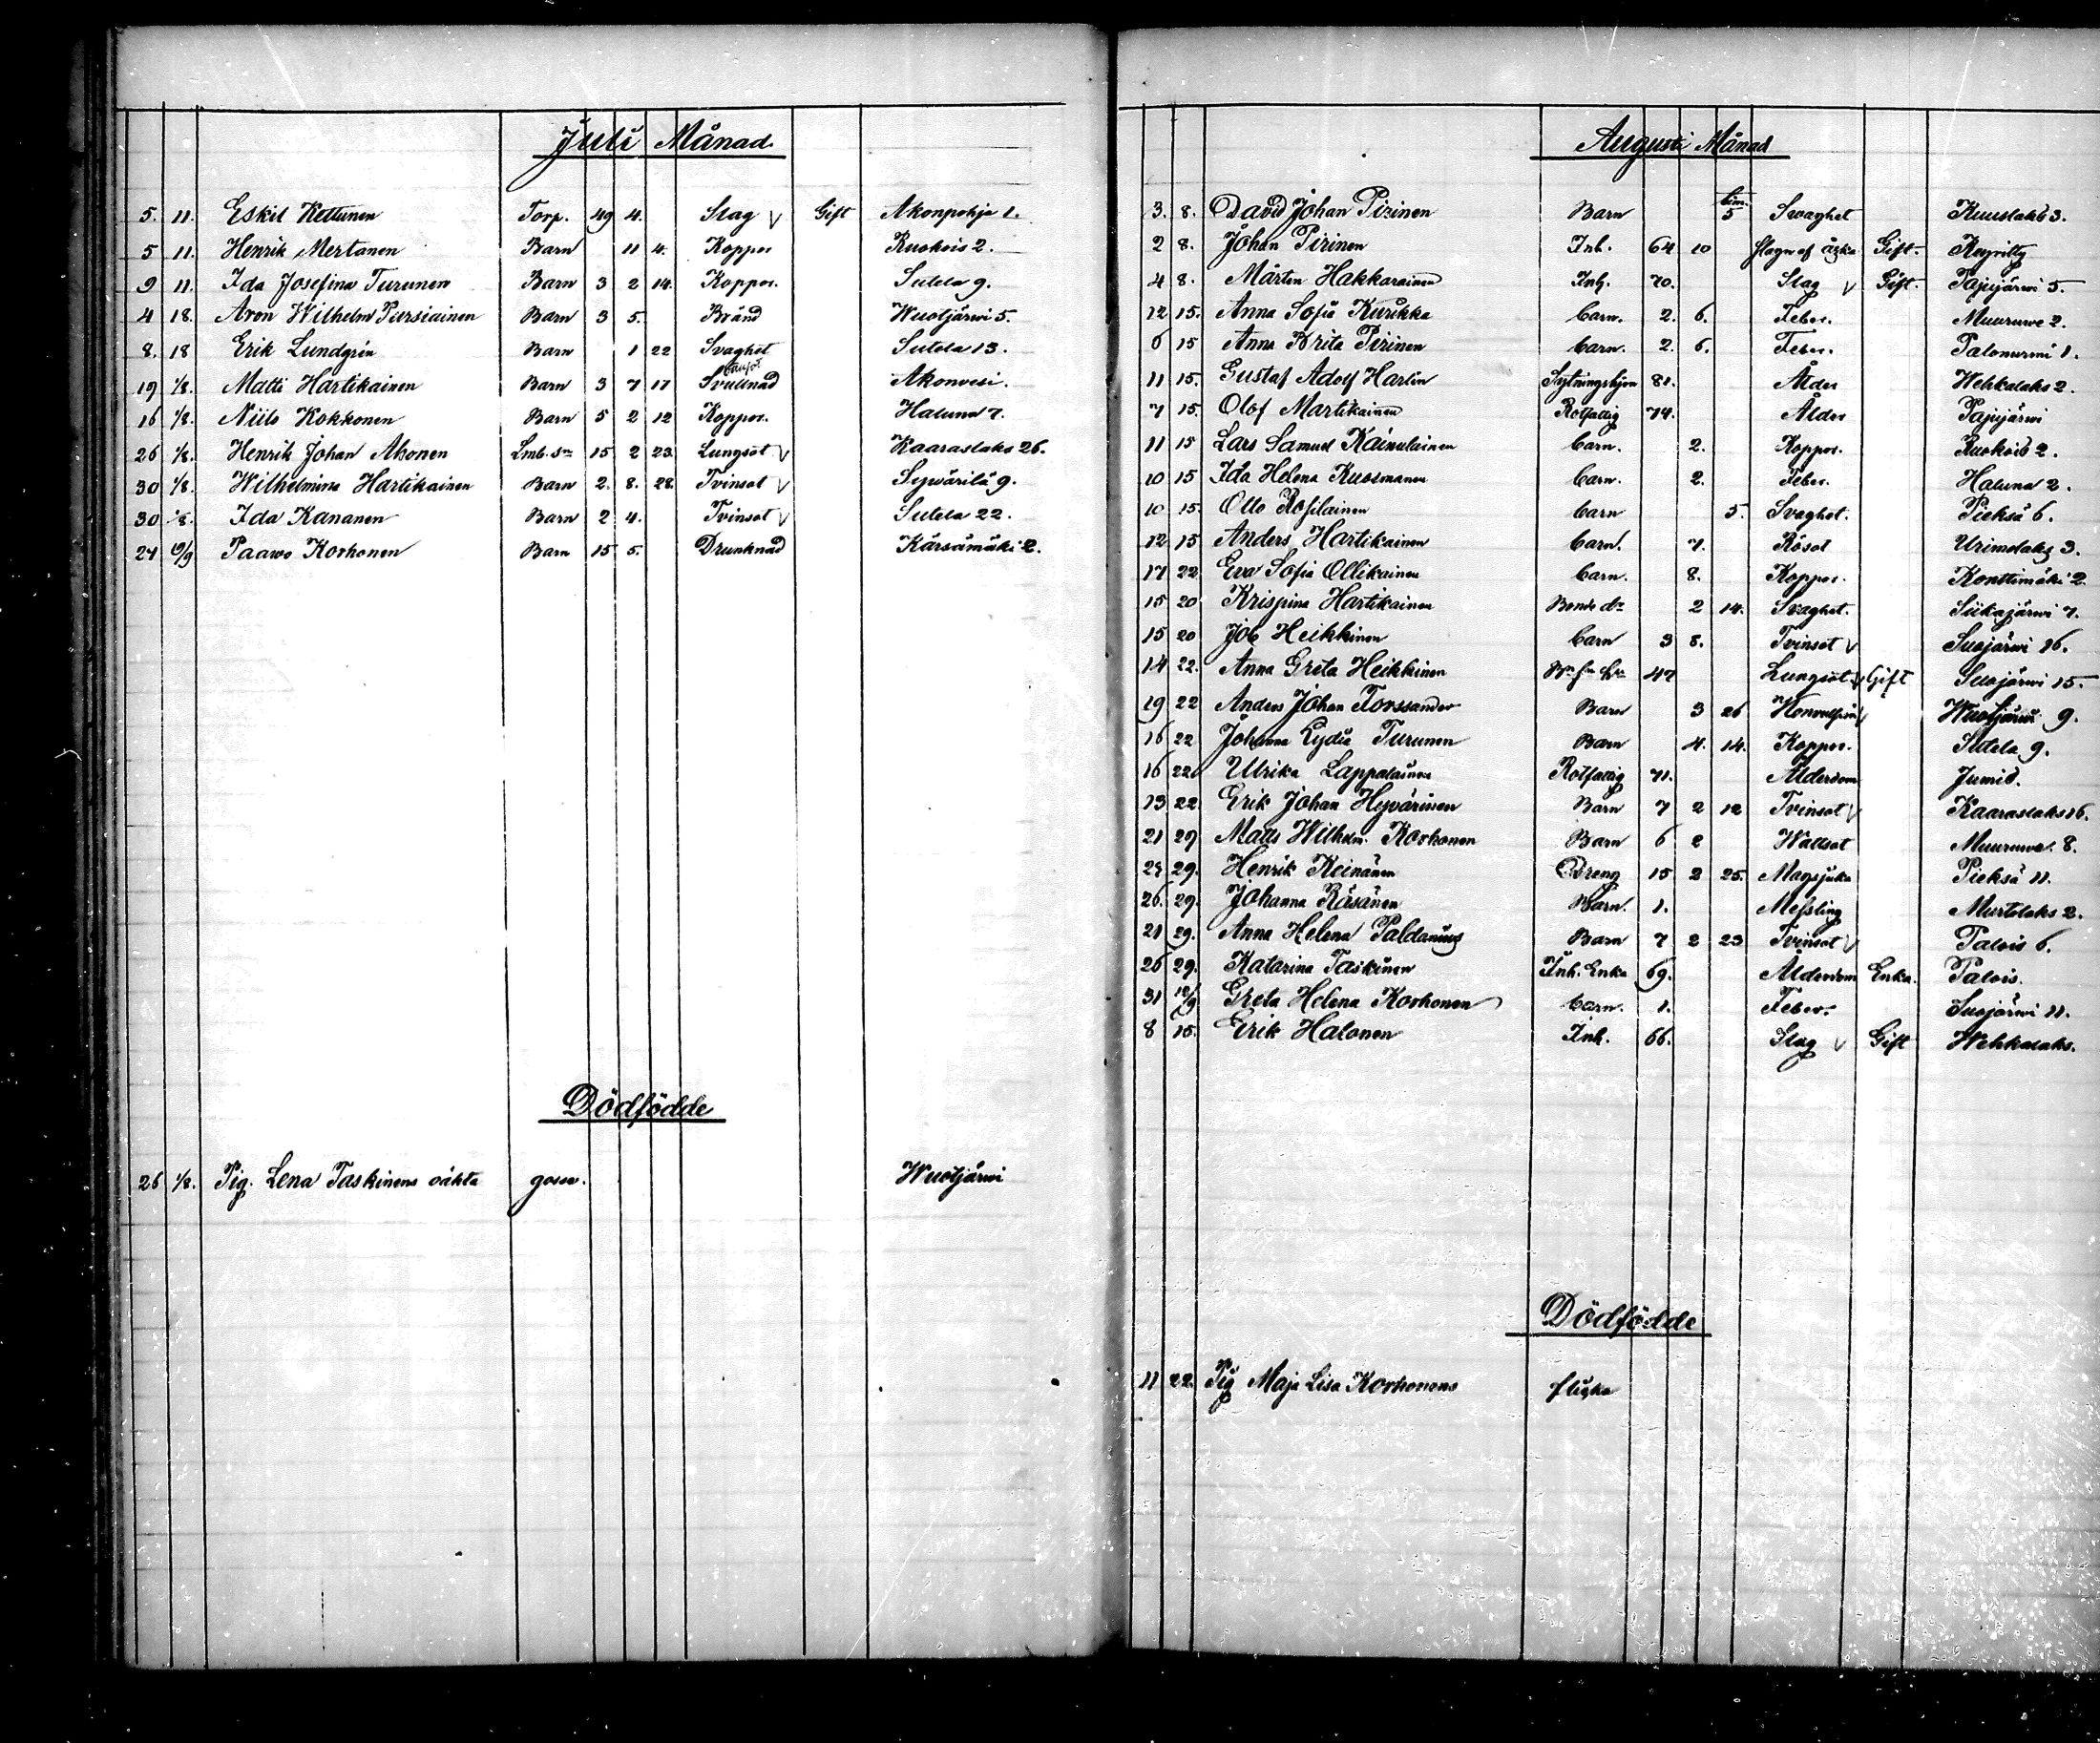 Juli Månad
5. 11. Eskil Kettunen Torp. 49 4. Slag Gift Akonpohja 1.
5 11. Henrik Mertanen Barn 11 4. Koppor Ruokois 2.
9 11. Ida Josefina Turunen Barn 3 2 14. Koppor. Sutela 9.
4 18. Aron Wilhelm Pursiainen Barn 3 5. Bränd Wuotjärwi 5.
8. 18 Erik Lundgrin Barn 1 22 Svaghet Sutela 13.
19 1/8. Matti Hartikainen Barn 3 7 17 Svullnad Akonvesi.
16 1/8. Niilo Kokkonen Barn 5 2 12 Koppor. Haluna 7.
26 1/8. Henrik Johan Ahonen Lmb. sn 15 2 23 Lungsot Kaaraslaks 26.
30 1/8. Wilhelmina Hartikainen Barn 2. 8. 28. Tvinsot Sywärilä 9.
30 1/8. Ida Kananen Barn 2 4. Tvinsot Sutela 22.
27 9/9 Paawo Korhonen Barn 15 5. Drunknad Kärsämäki 2.
Dödfödde
26 1/8. Pig. Lena Taskinens oähta gosse. Wuotjärwi
Augusti Månad
3. 8. David Johan Pirinen Barn tim. 5 Svaghet Kuuslaks 3.
2 8. Johan Pirinen Inh. 64 10 slagn af åska Gift. Keyritty
4 8. Mårten Hakkarainen Inh. 70. Slag Gift. Pajujärwi 5.
12 15. Anna Sofia Kurikka barn. 2. 6. Feber. Muuruwe 2.
6 15 Anna Brita Pirinen barn. 2. 6. Feber. Palonurmi 1.
11 15. Gustaf Adolf Harlin Sytningshjon 81. Ålder Wehkalaks 2.
7 15. Olof Martikainen Rotfattig 74. Ålder Pajujärwi
11 15 Lars Samuel Kainulainen barn. 2. Koppor. Ruokois 2.
10 15 Ida Helena Kuosmanen barn. 2. Feber. Haluna 2.
10 15. Otto Rosilainen barn 5. Svaghet. Pieksä 6.
12 15 Anders Hartikainen barn. 7. Rösot Urimolaks 3.
17 22 Eva Sofia Ollikainen barn. 8. Koppor. Konttimäki 2.
15 20 Krispina Hartikainen Bonde dr 2 14. Svaghet. Siikajärwi 7.
15 20 Job Heikkinen barn 3 8. Tvinsot Suojärwi 16.
14 22. Anna Greta Heikkinen 47 Lungsot Gift Suojärwi 15.
19 22 Anders Johan Forssander Barn 3 26 Wuotjärwi 9.
16 22 Johanna Lydia Turunen Barn 4. 14. Koppor. Sutela 9.
16 22 Ulrika Lappalainen Rotfattig 71. Ålderdom Jumis.
13 22 Erik Johan Hyvärinen Barn 7 2 12 Tvinsot Kaaraslaks 16.
21 29 Matts Wilhelm. Korhonen Barn 6 2 Wattsot Muuruwe 8.
27 29. Henrik Keinänen Dreng 15 2 25. Magsjuka Pieksä 11.
26. 29. Johanna Räsänen Barn. 1. Messling Murtolaks 2.
21 29. Anna Helena Paldanius Barn 7 2 23 Tvinsot Palois 6.
26 29. Katarina Taskinen Inh. Enka 69. Ålderdom Enka. Palois.
31 12/9 Greta Helena Korhonen barn. 1. Feber. Suojärwi 11.
8 15. Erik Halonen Inh. 66. Slag Gift Wehkalaks.
Dödfödde
11 22. Pig Maja Lisa Korhonens flicka